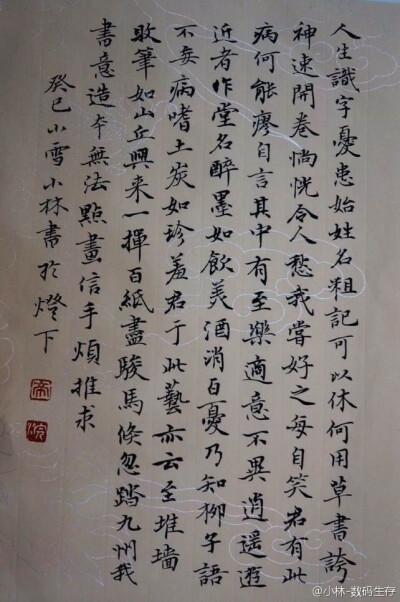 人生識字憂患始姓名粗記可以休何用草書誇
神速開卷惝恍令人愁我嘗好之每自笑君有此
病何能瘳自言其中有至樂適意不異逍遥遊
近者作堂名醉墨如飲美酒消百憂乃知柳子語
不妄病嗜土炭如珍羞君于此藝亦云至堆墻
敗筆如山丘興来一揮百紙盡駿馬倏忽踏九州我
書意造本無法點畫信手煩推求
癸巳小雪小林書於燈下
@小林-数码生存